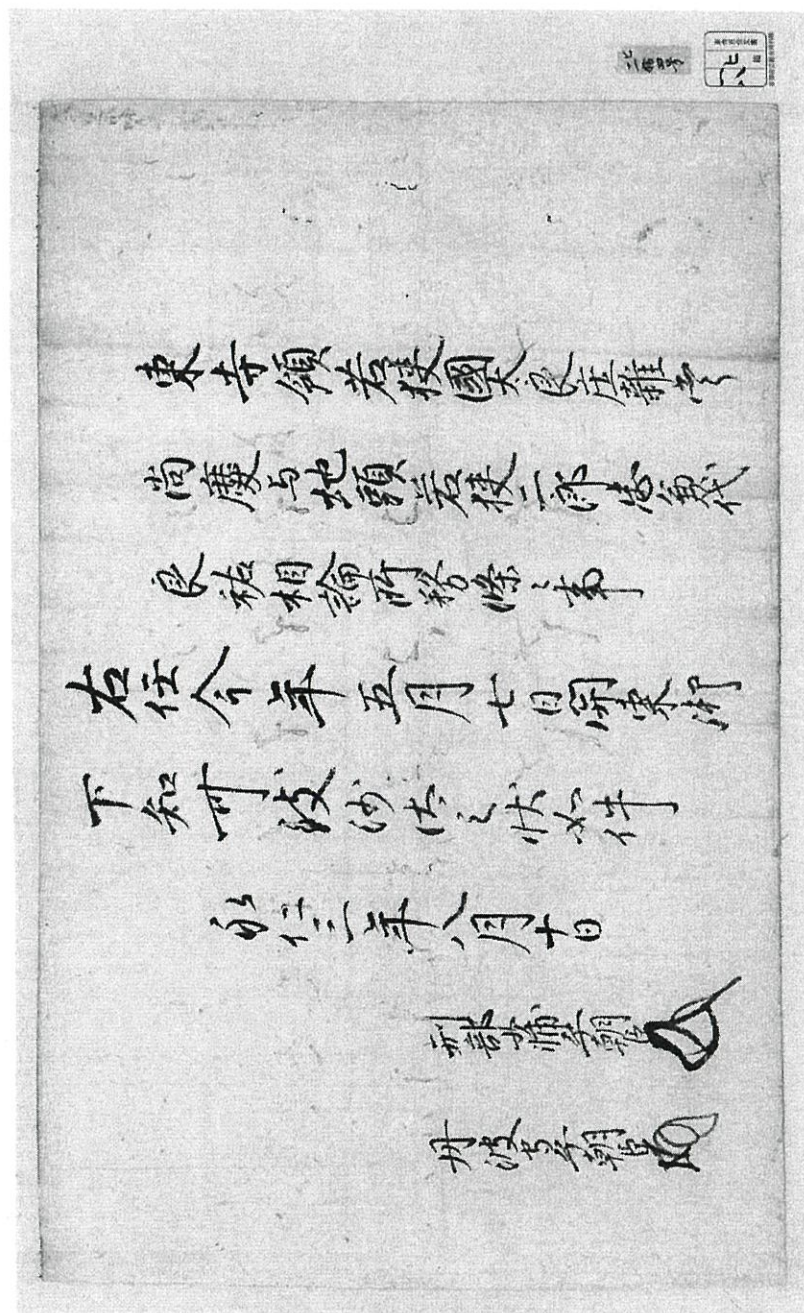 東寺領若狹國太良庄雜掌
尚慶与地頭若狹二郎忠兼代
良祐相論所務條々事
右任今年五月七日関東御
下知可致沙汰之状如件
永仁三年八月十日
刑部少輔平朝臣
丹波守平朝臣
東寺百合文書